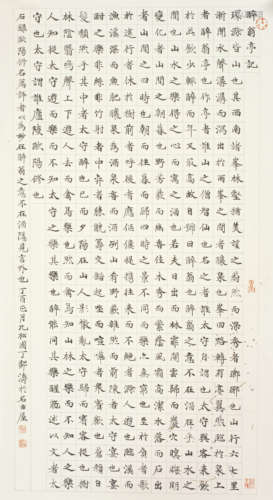 醉翁亭記
環滁皆山也其西南諸峰林壑尤美望之蔚然而深秀者瑯琊也山行六七里
漸聞水聲潺潺而瀉出於兩峰之間者釀泉也峰回路轉有亭翼然臨於泉上
者醉翁亭也作亭者誰山之僧智仙也名之者誰太守自謂也太守與客來飲
於此飲少輒醉而年又最高故自號曰醉翁也醉翁之意不在酒在乎山水之
間也山水之樂得之心而寓之酒也若夫日出而林霏開雲歸而巖穴暝晦明
變化者山間之朝暮也野芳發而幽香佳木秀而繁陰風霜高潔水落而石出
者山間之四時也朝而往暮而歸四時之景不同而樂亦無窮也至於負者歌
於途行者休於樹前者呼後者應傴僂提攜往來而不絕者滁人遊也臨溪而
漁溪深而魚肥釀泉為酒泉香而酒洌山肴野蔌雜然而前陳者太守宴也宴
酣之樂非絲非竹射者中弈者勝觥籌交錯起坐而喧嘩者眾賓歡也蒼顏白
髮頹然乎其中者太守醉也已而夕陽在山人影散亂太守歸而賓客從也樹
林陰翳鳴聲上下遊人去而禽鳥樂也然而禽鳥知山林之樂而不知人之樂
人知從太守遊而樂而不知太守之樂其樂也醉能同其樂醒能述以文者太
守也太守謂誰廬陵歐陽修也
歐陽修名篇 醉翁之意不在酒 丁酉